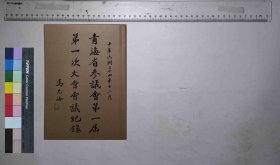 中華民國三十四年十二月
青海省參議會第一屆
第一次大會會議紀錄
馬元海